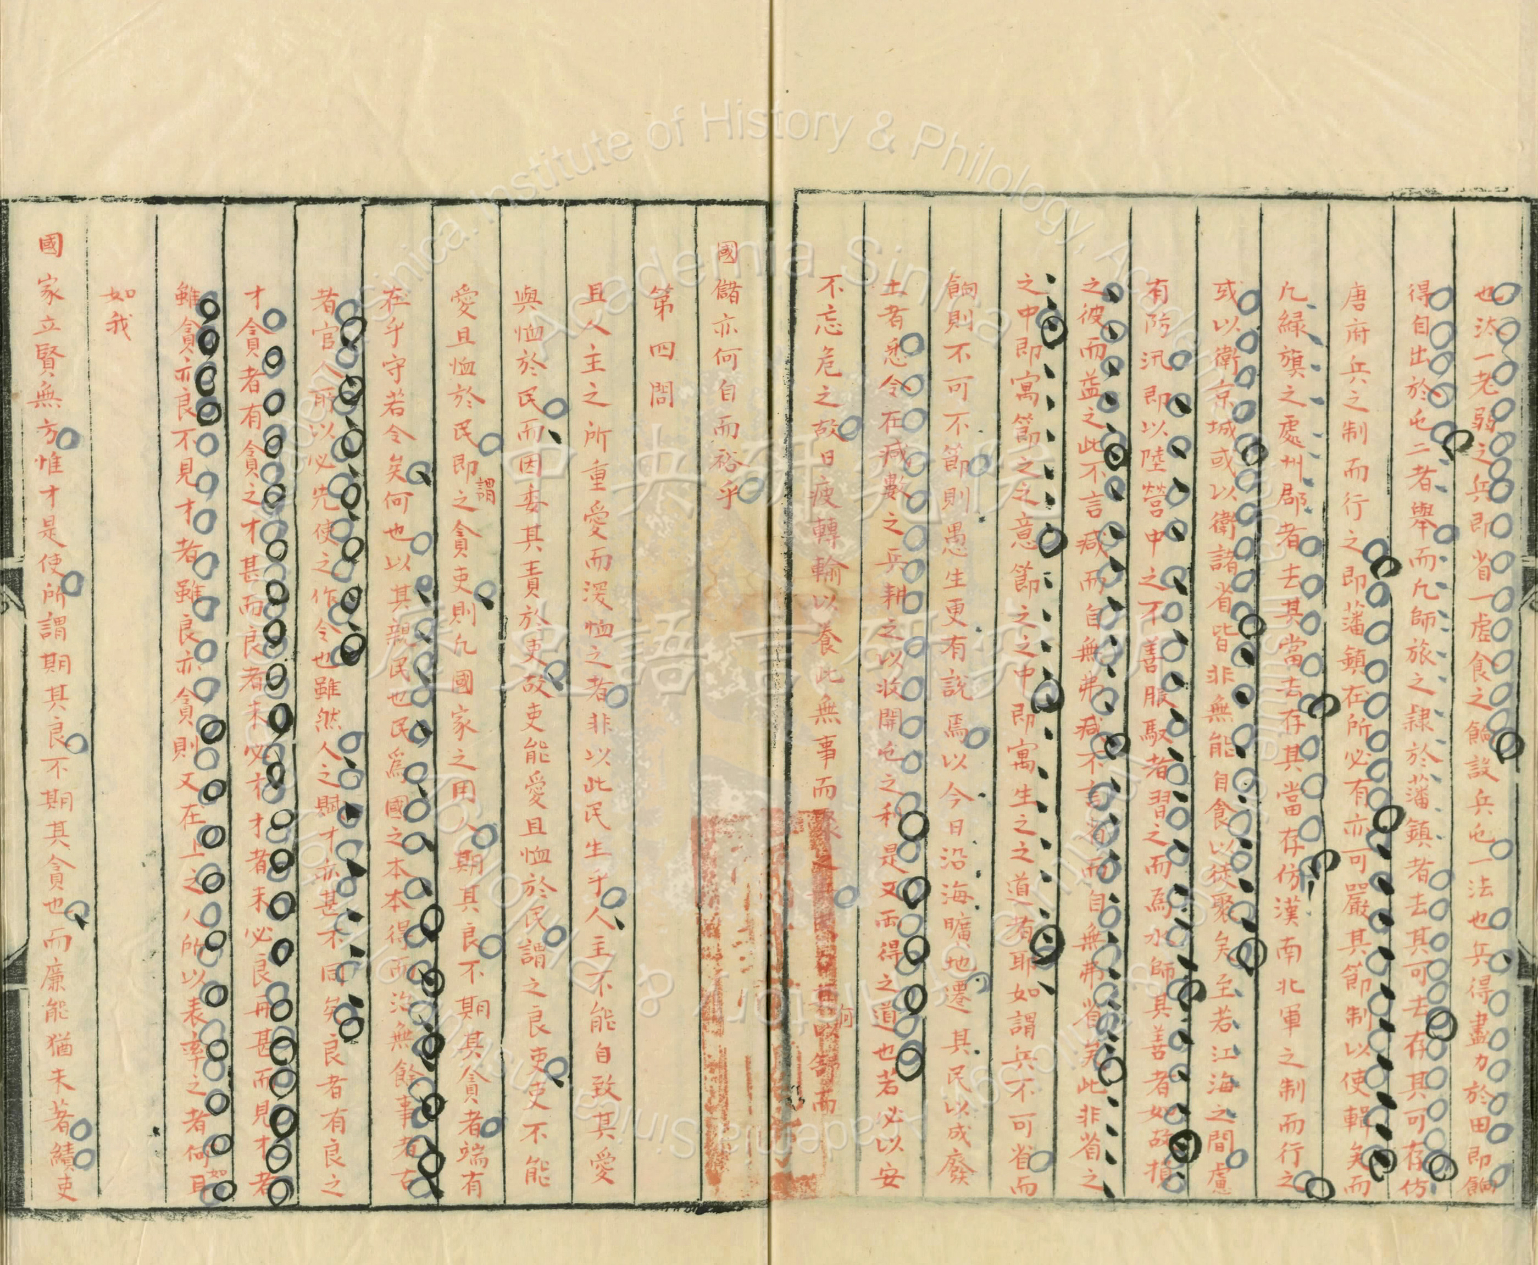 也汰一老弱之兵即省一虛食之餉設兵屯一法也兵得盡力於田即餉
得自出於屯二者舉而凡師旅之隸於藩鎮者去其可去存其可存仿
唐府兵之制而行之即藩鎮在所必有亦可嚴其節制以使輯矣而
凡綠旗之處州郡者去其當去存其當存仿漢南北軍之制而行之
或以衛京城或以衛諸省皆非無能自食以徒聚矣至若江海之間慮
有防汛即以陸營中之不善服馭者習之而為水師其善者如故額
之彼而益之此不言減而自無弗減不言省而自無弗省矣此非省之
之中即寓節之之意節之之中即寓生之之道者耶如謂兵不可省而
餉則不可不節則愚生更有說焉以今日沿海曠地遷其民以成廢
土者悉令在減數之兵耕之以收開屯之利是又兩得之道也若必以安
不忘危之故日疲轉輸以養此無事而聚之
何
國儲亦何自而裕乎
第四問
且人主之所重愛而深恤之者非以此民生乎人主不能自致其愛
與恤於民而因委其責於吏故吏能愛且恤於民謂之良吏吏不能
愛且恤於民即謂之貪吏則凡國家之用人期其良不期其貪者端有
在乎守若令矣何也以其親民也民為國之本本得而治無餘事者古
者官人所以必先使之作令也雖然人之賦才亦甚不同矣良者有良之
才貪者有貪之才甚而良者未必有才才者未必良再甚而見才者
雖貪亦良不見才者雖良亦貪則又在上之人所以表率之者何如耳
如我
國家立賢無方惟才是使所謂期其良不期其貪也而廉能猶未著績吏
Institute of History & Philology, Academia Sinica
中央研究院
歷史語言研究所